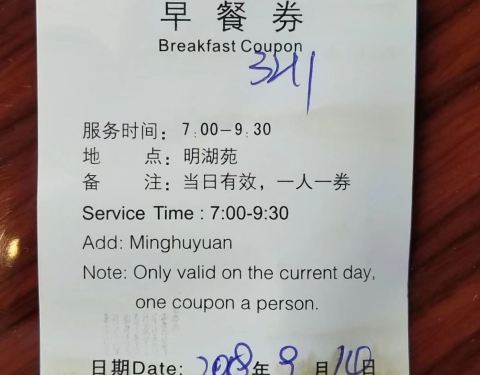 早餐券
Breakfast Coupon
服务时间：7:00-9:30
地　　点：明湖苑
备　　注：当日有效，一人一券
Service Time : 7:00-9:30
Add: Minghuyuan
Note: Only valid on the current day,
one coupon a person.
日期Date: 年 9 月 14 日